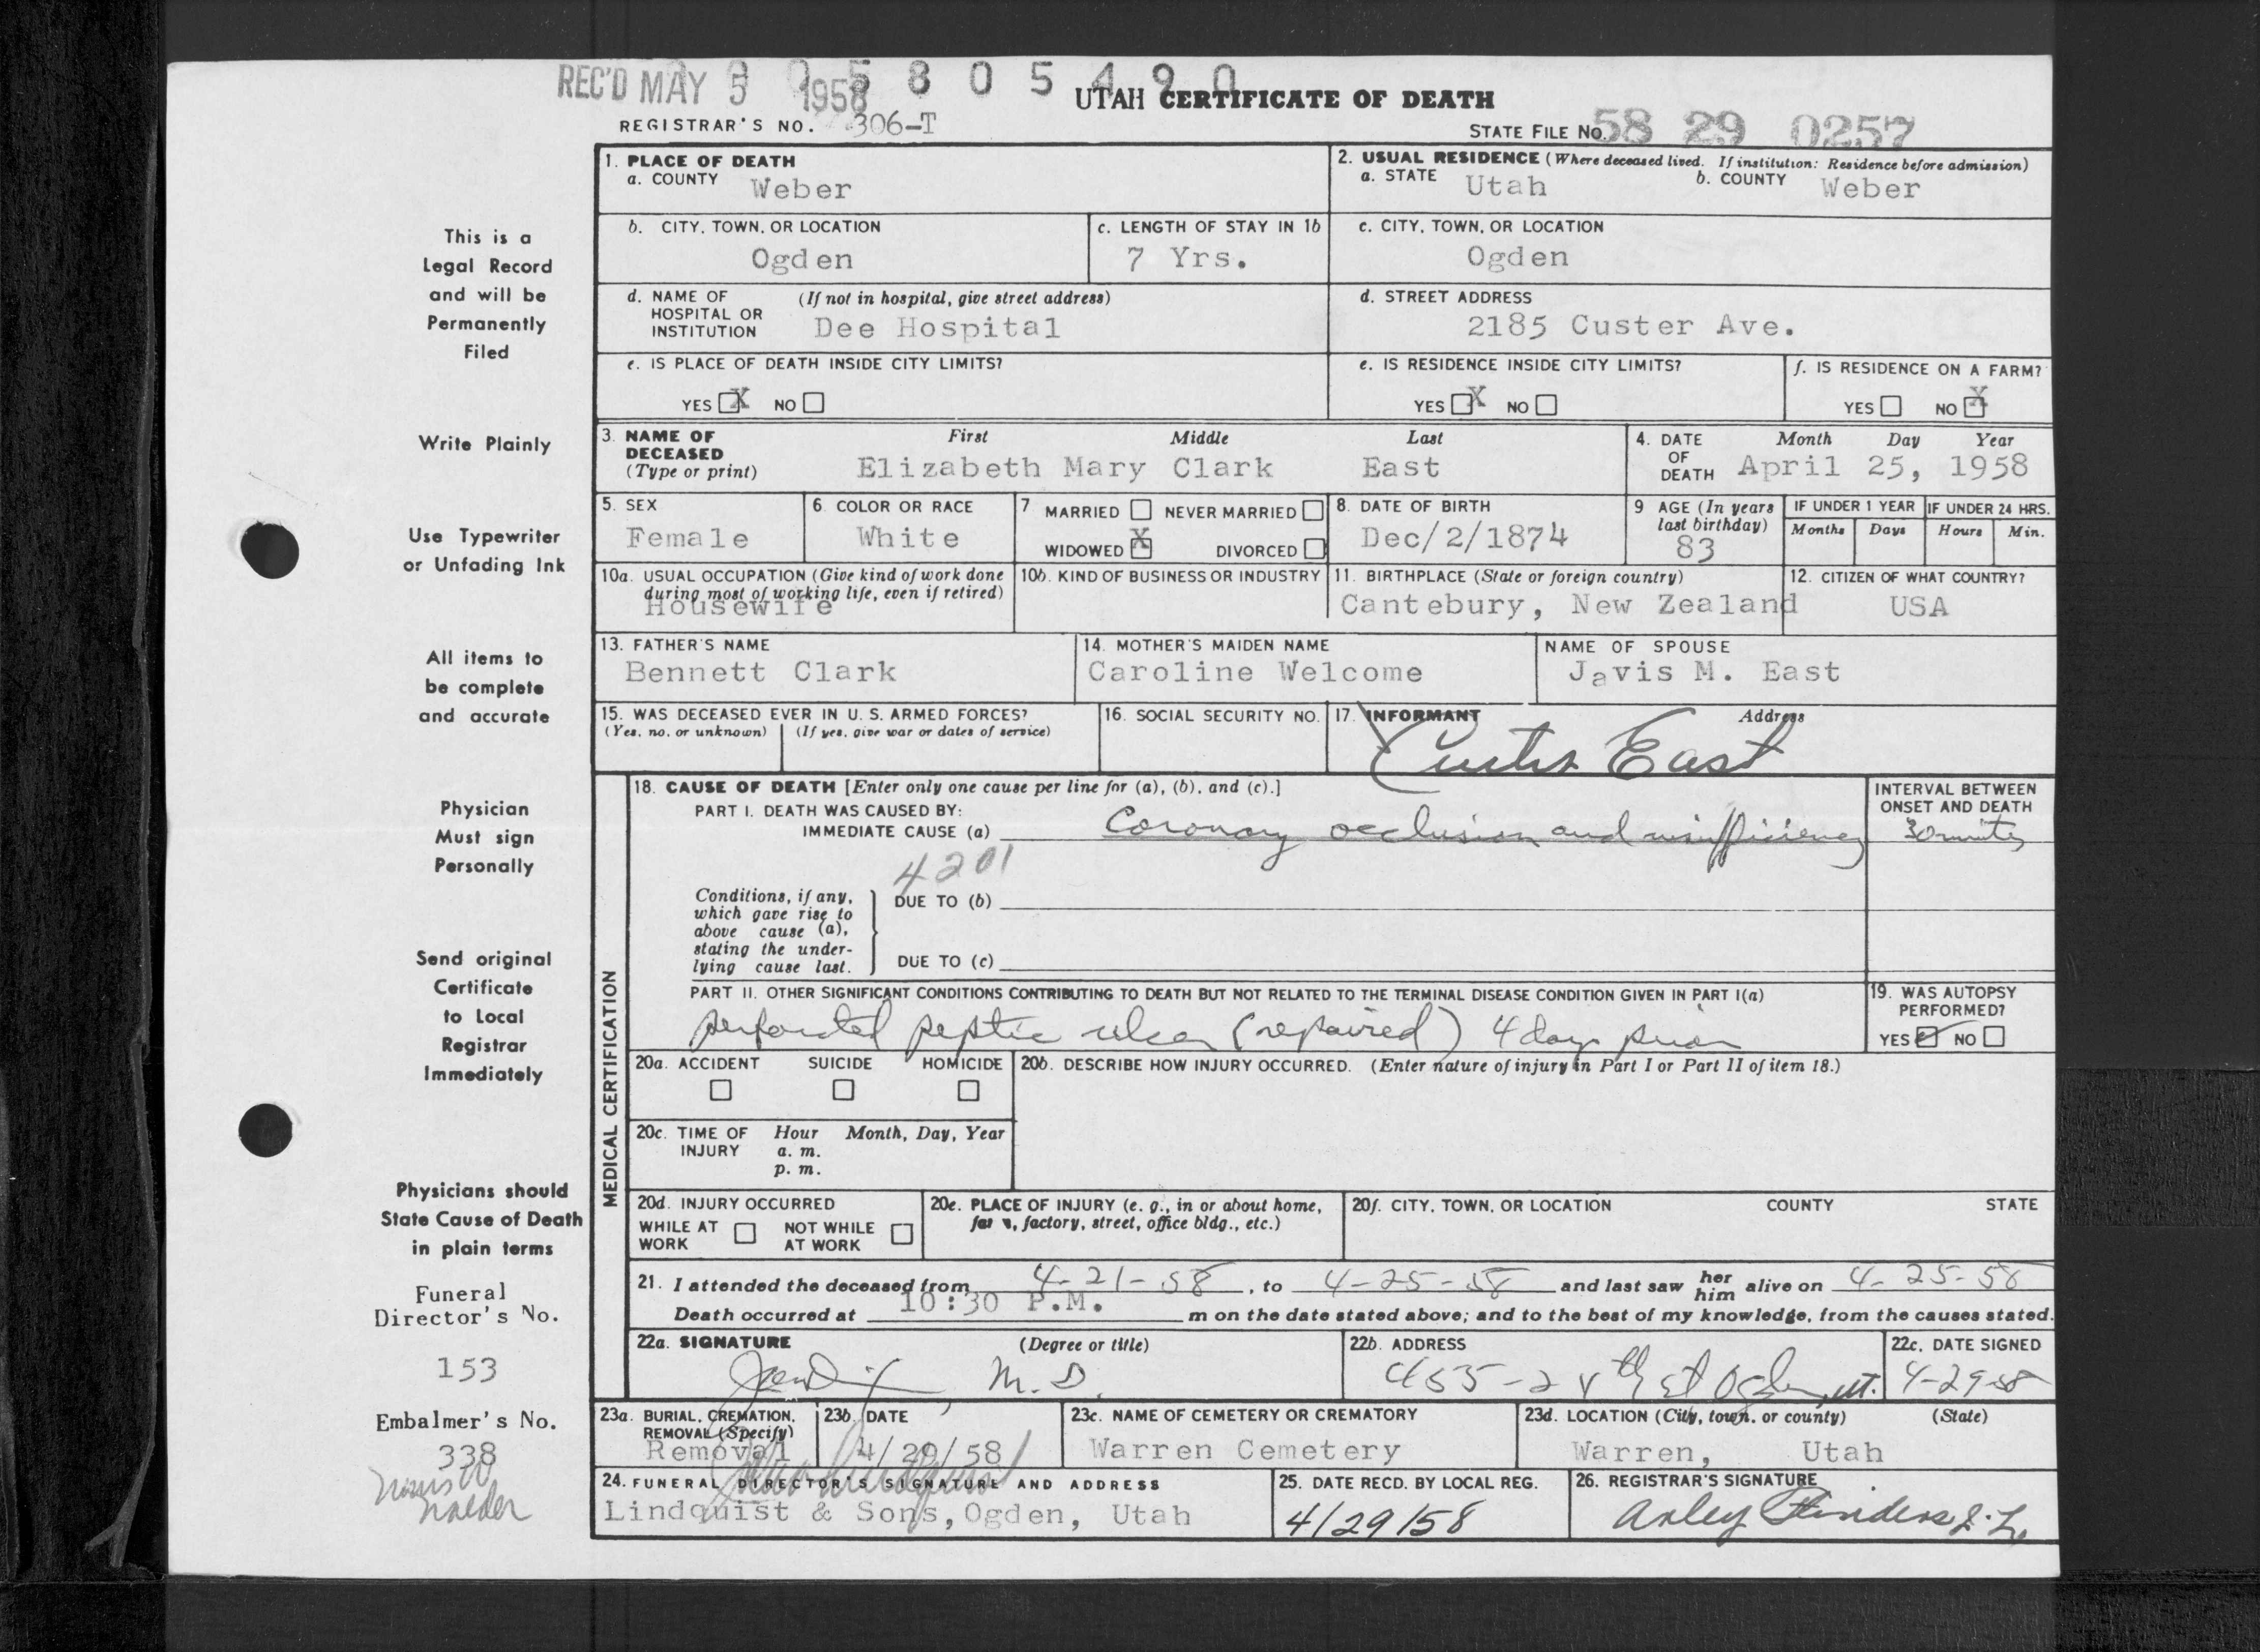 REC'D MAY 5 1958
8 0 5 4 9 0
UTAH CERTIFICATE OF DEATH
REGISTRAR'S NO. 306-T
STATE FILE No. 58 29 0257
1. PLACE OF DEATH
a. COUNTY Weber
2. USUAL RESIDENCE (Where deceased lived. If institution: Residence before admission)
a. STATE Utah b. COUNTY Weber
b. CITY, TOWN, OR LOCATION
Ogden
c. LENGTH OF STAY IN 1b
7 Yrs.
c. CITY, TOWN, OR LOCATION
Ogden
d. NAME OF HOSPITAL OR INSTITUTION (If not in hospital, give street address)
Dee Hospital
d. STREET ADDRESS
2185 Custer Ave.
e. IS PLACE OF DEATH INSIDE CITY LIMITS?
YES X NO
e. IS RESIDENCE INSIDE CITY LIMITS?
YES X NO
f. IS RESIDENCE ON A FARM?
YES NO X
3. NAME OF DECEASED (Type or print)
First Middle Last
Elizabeth Mary Clark East
4. DATE OF DEATH
Month Day Year
April 25, 1958
5. SEX
Female
6. COLOR OR RACE
White
7 MARRIED NEVER MARRIED
WIDOWED X DIVORCED
8. DATE OF BIRTH
Dec/2/1874
9 AGE (In years last birthday)
83
IF UNDER 1 YEAR
Months Days
IF UNDER 24 HRS.
Hours Min.
10a. USUAL OCCUPATION (Give kind of work done during most of working life, even if retired)
Housewife
10b. KIND OF BUSINESS OR INDUSTRY
11. BIRTHPLACE (State or foreign country)
Cantebury, New Zealand
12. CITIZEN OF WHAT COUNTRY?
USA
13. FATHER'S NAME
Bennett Clark
14. MOTHER'S MAIDEN NAME
Caroline Welcome
NAME OF SPOUSE
Javis M. East
15. WAS DECEASED EVER IN U. S. ARMED FORCES?
(Yes, no, or unknown) (If yes, give war or dates of service)
16. SOCIAL SECURITY NO.
17. INFORMANT Address
Curtis East
MEDICAL CERTIFICATION
18. CAUSE OF DEATH [Enter only one cause per line for (a), (b), and (c).]
PART I. DEATH WAS CAUSED BY:
IMMEDIATE CAUSE (a) Coronary occlusion and insufficiency
INTERVAL BETWEEN ONSET AND DEATH
30 minutes
4201
Conditions, if any, which gave rise to above cause (a), stating the underlying cause last.
DUE TO (b)
DUE TO (c)
PART II. OTHER SIGNIFICANT CONDITIONS CONTRIBUTING TO DEATH BUT NOT RELATED TO THE TERMINAL DISEASE CONDITION GIVEN IN PART I(a)
perforated peptic ulcer (repaired) 4 days prior
19. WAS AUTOPSY PERFORMED?
YES NO
20a. ACCIDENT SUICIDE HOMICIDE
20b. DESCRIBE HOW INJURY OCCURRED. (Enter nature of injury in Part I or Part II of item 18.)
20c. TIME OF INJURY Hour Month, Day, Year
a. m.
p. m.
20d. INJURY OCCURRED
WHILE AT WORK NOT WHILE AT WORK
20e. PLACE OF INJURY (e. g., in or about home, farm, factory, street, office bldg., etc.)
20f. CITY, TOWN, OR LOCATION COUNTY STATE
21. I attended the deceased from 4-21-58, to 4-25-58 and last saw her him alive on 4-25-58
Death occurred at 10:30 P.M. m on the date stated above; and to the best of my knowledge, from the causes stated.
22a. SIGNATURE (Degree or title)
M. D.
22b. ADDRESS
St Ogden, Ut.
22c. DATE SIGNED
4-29-58
23a. BURIAL, CREMATION, REMOVAL (Specify)
Removal
23b. DATE
4/29/58
23c. NAME OF CEMETERY OR CREMATORY
Warren Cemetery
23d. LOCATION (City, town, or county) (State)
Warren, Utah
24. FUNERAL DIRECTOR'S SIGNATURE AND ADDRESS
Lindquist & Sons, Ogden, Utah
25. DATE RECD. BY LOCAL REG.
4/29/58
26. REGISTRAR'S SIGNATURE
Arley Flinders
This is a
Legal Record
and will be
Permanently
Filed
Write Plainly
Use Typewriter
or Unfading Ink
All items to
be complete
and accurate
Physician
Must sign
Personally
Send original
Certificate
to Local
Registrar
Immediately
Physicians should
State Cause of Death
in plain terms
Funeral
Director's No.
153
Embalmer's No.
338